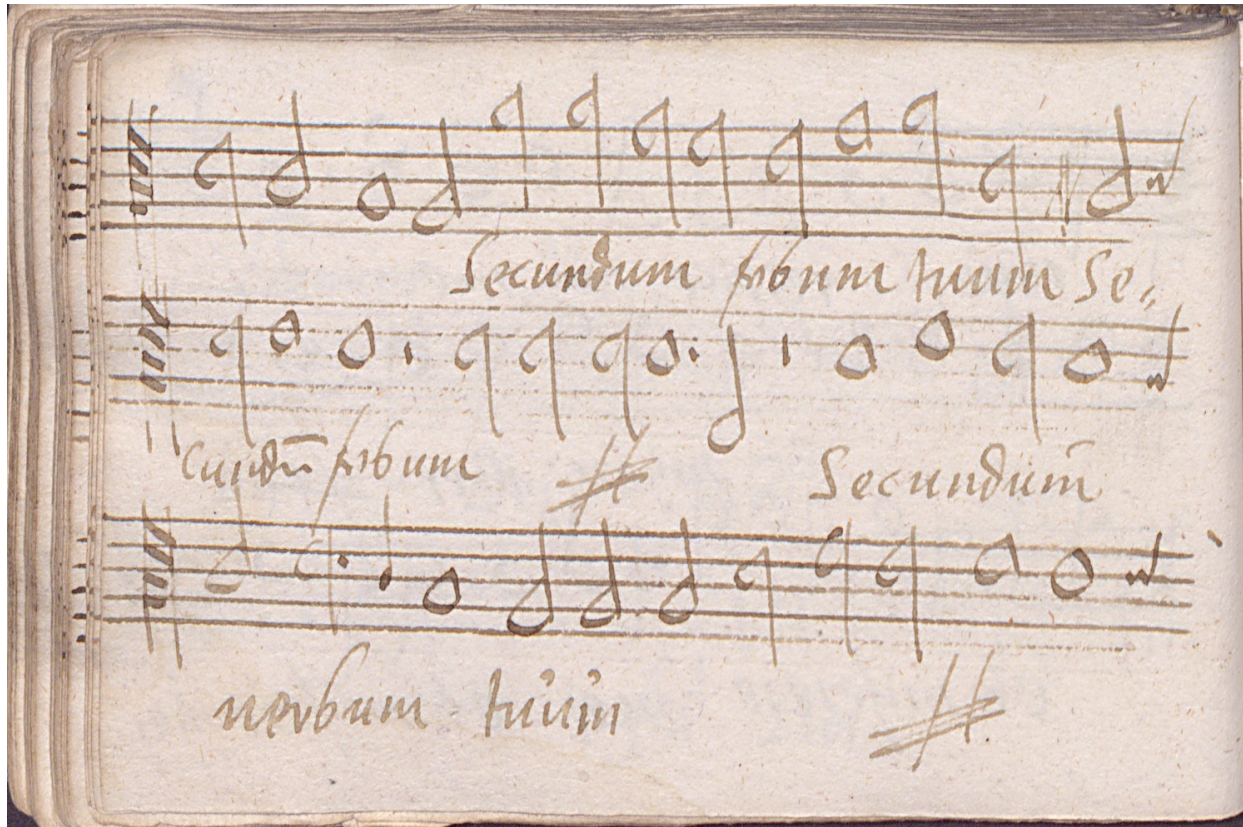 Secundum vĕbum tuum Se„
cundū vĕbum
Secundum̄
verbum tuum